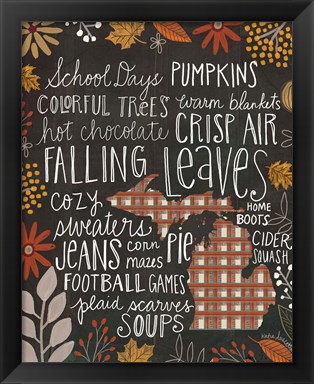 School Days PUMPKINS
COLORFUL TREES warm blankets
hot chocolate CRISP AIR
FALLING Leaves
COZY HOME
sweaters BOOTS
JEANS corn mazes PIE CIDER
SQUASH
FOOTBALL GAMES
plaid scarves
SOUPS